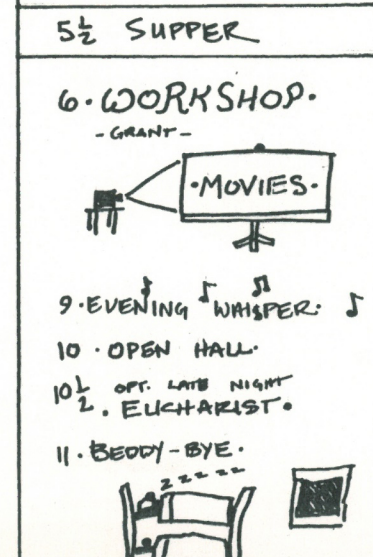 5½ SUPPER
6. WORKSHOP.
- GRANT -
·MOVIES·
9. EVENING WHISPER.
10. OPEN HALL.
10½ OPT. LATE NIGHT
. EUCHARIST.
11. BEDDY-BYE.
zzzzz